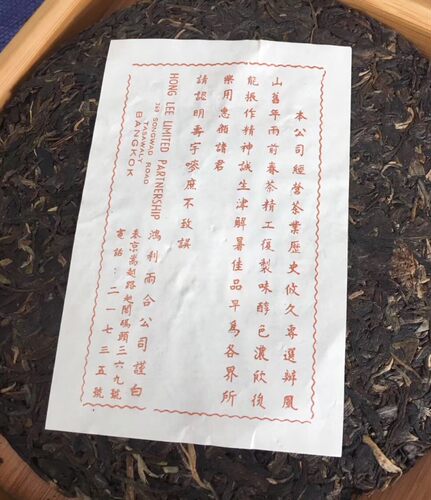 本公司經營茶業歷史攸久專選辦鳳
山舊年雨前春茶精工復製味醇色濃飲後
能振作精神誠生津解暑佳品早為各界所
樂用惠顧諸君
請認明壽字嘜庶不致誤
HONG LEE LIMITED PARTNERSHIP
369 SONGWAD ROAD
TASAWALY
BANGKOK
鴻利兩合公司謹白
泰京嵩越路越閣碼頭三六九號
電話：二一七三五號